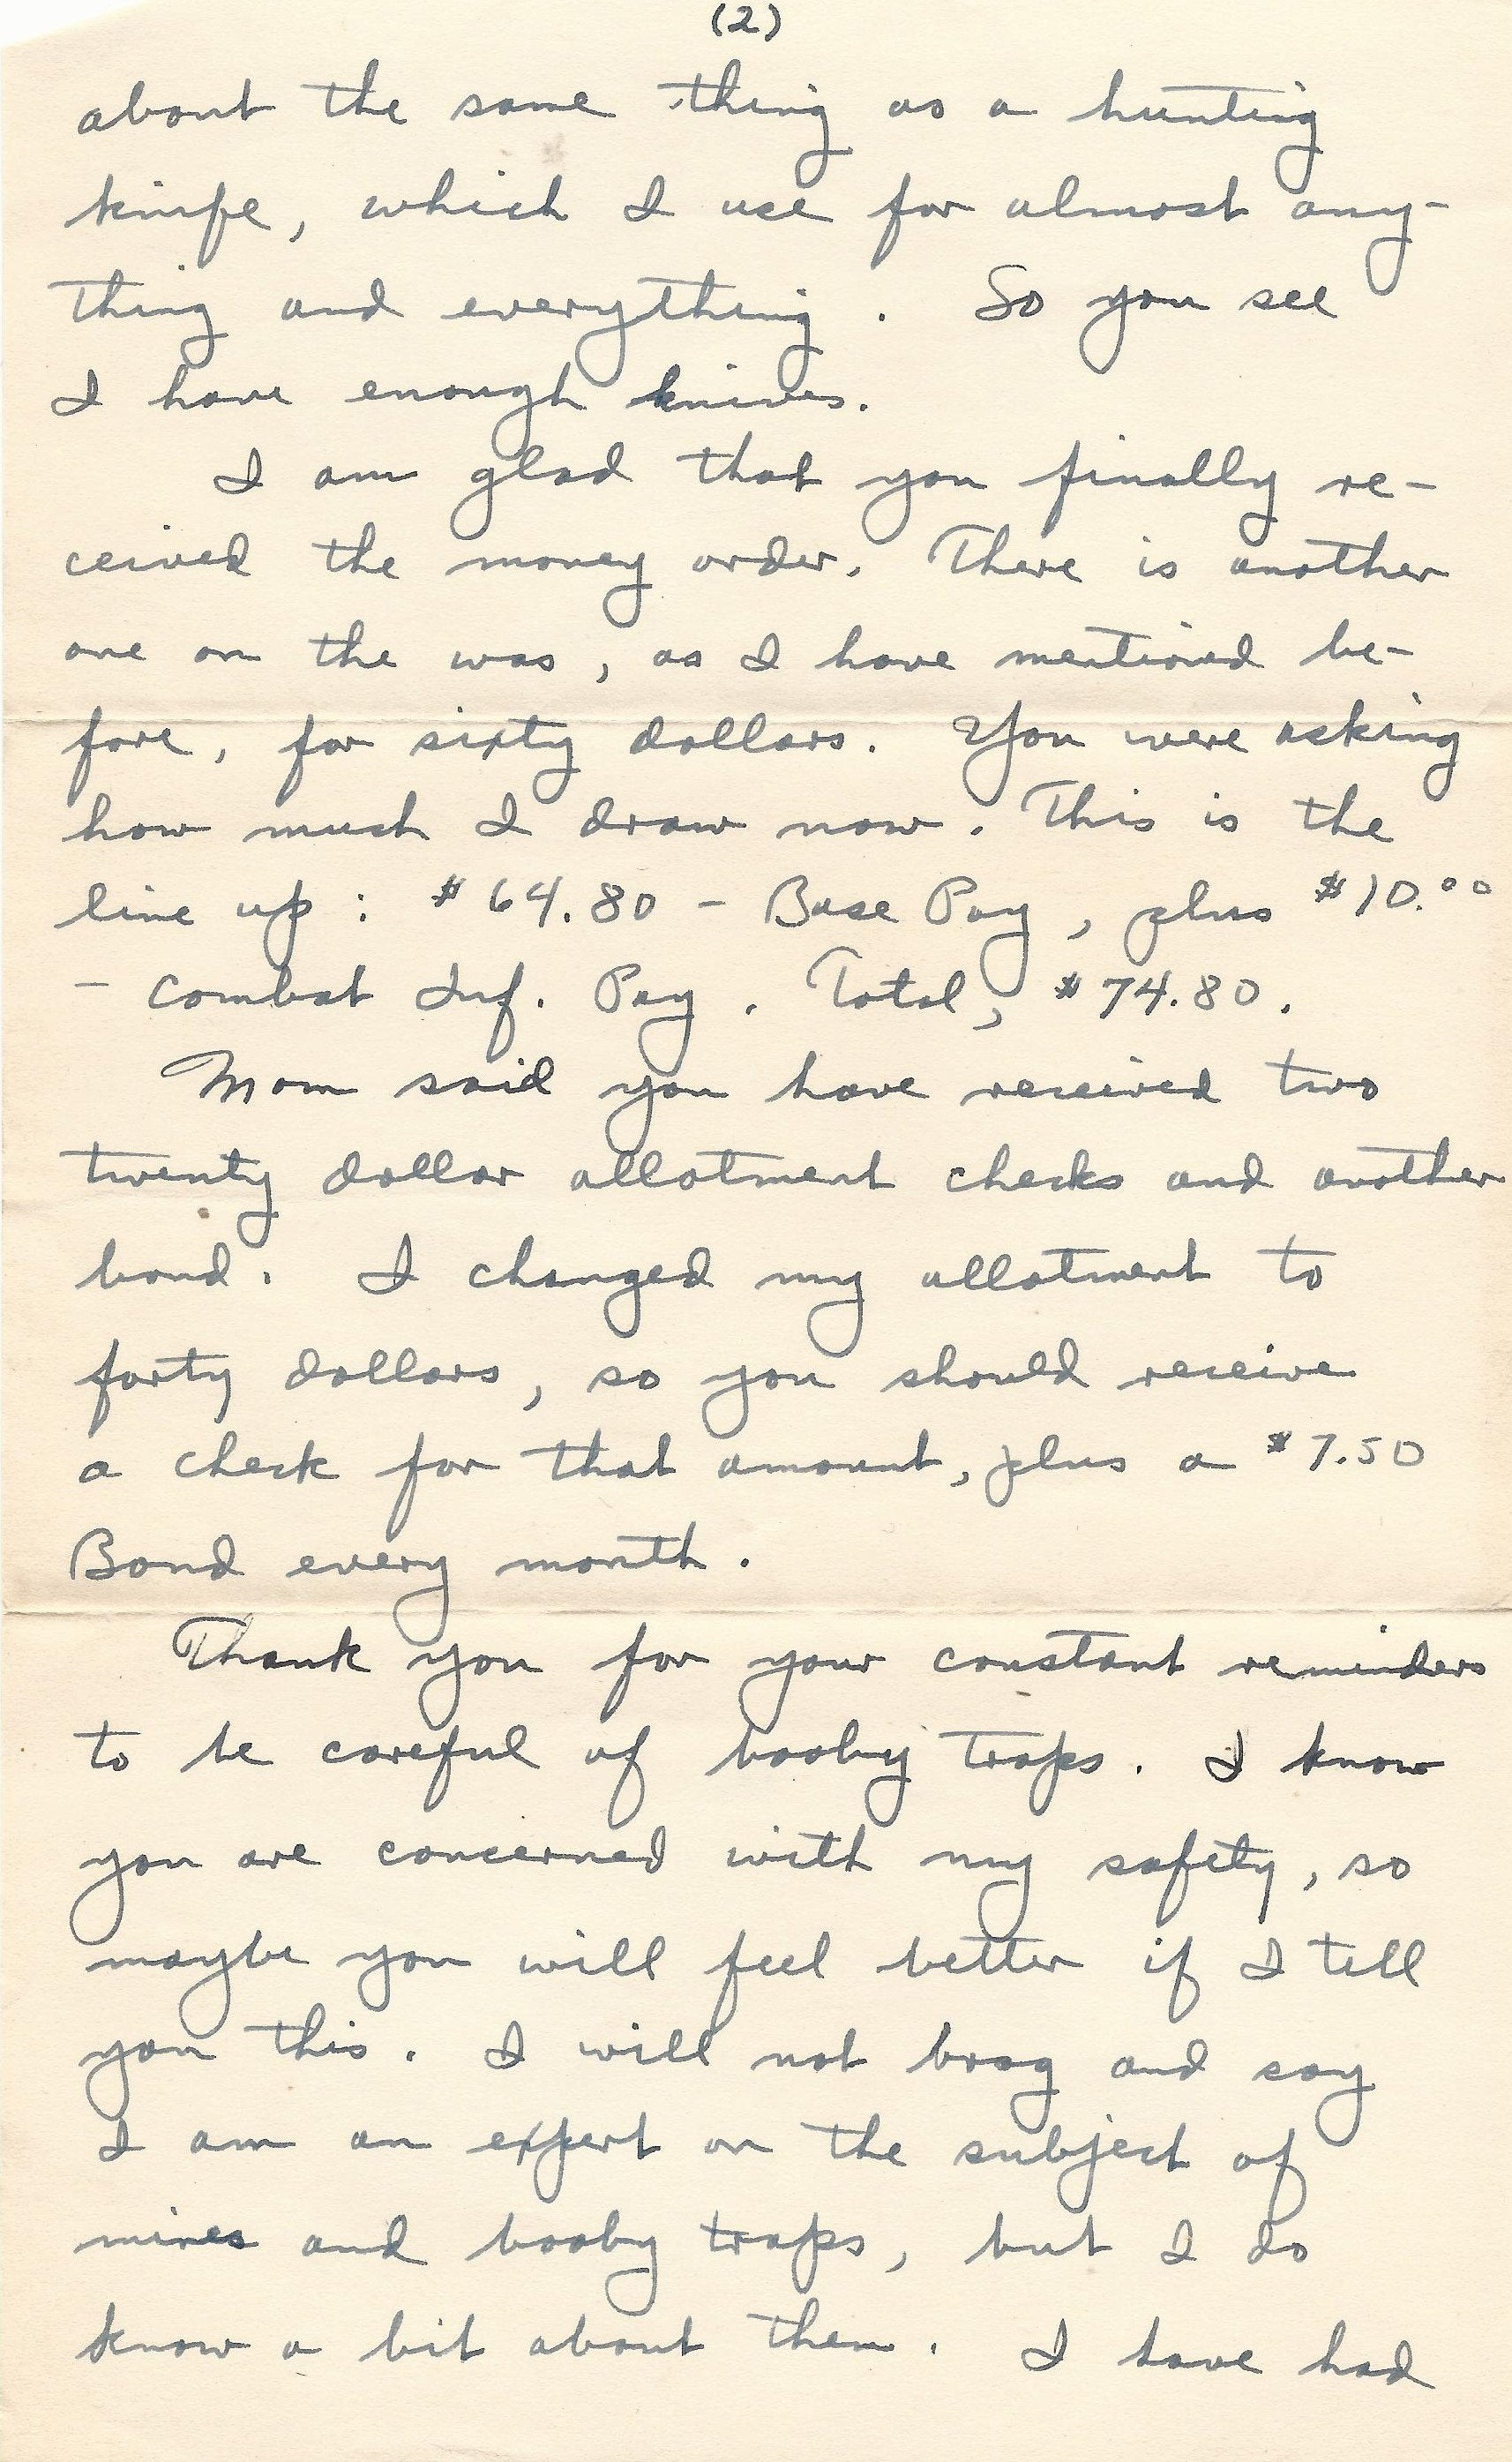 (2)
about the same thing as a hunting
knife, which I use for almost any-
thing and everything. So you see
I have enough knives.
I am glad that you finally re-
ceived the money order. There is another
one on the was, as I have mentioned be-
fore, for sixty dollars. You were asking
how much I draw now. This is the
line up: $64.80 - Base Pay, plus $10.00
- Combat Inf. Pay. Total, $74.80.
Mom said you have received two
twenty dollar allotment checks and another
bond. I changed my allotment to
forty dollars, so you should receive
a check for that amount, plus a $7.50
Bond every month.
Thank you for your constant reminders
to be careful of booby traps. I know
you are concerned with my safety, so
maybe you will feel better if I tell
you this. I will not brag and say
I am an expert on the subject of
mines and booby traps, but I do
know a bit about them. I have had